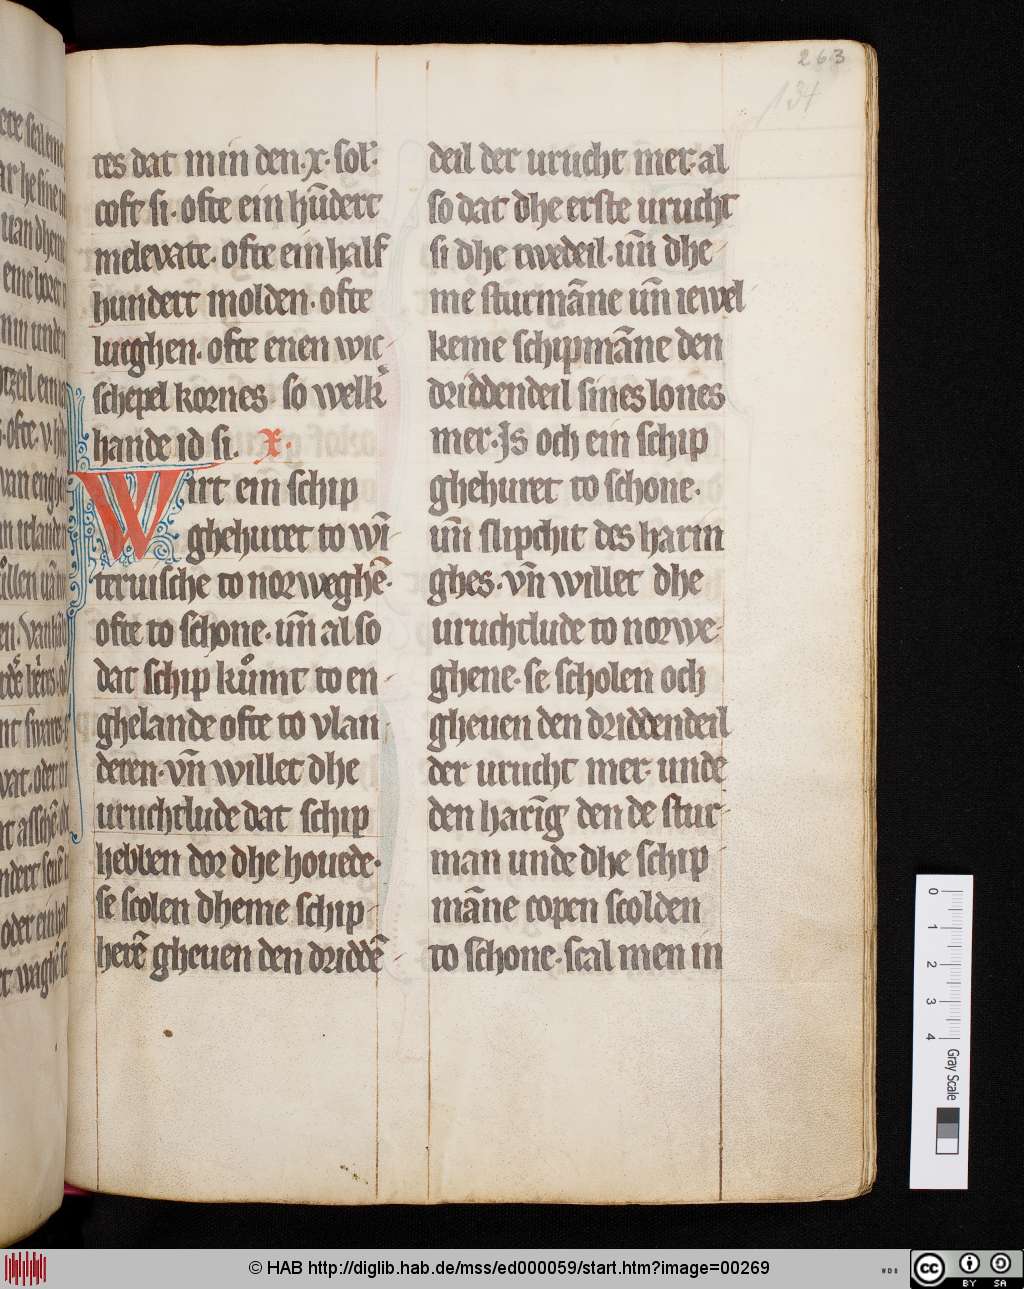 263
134
tes dat min den · x · sol᷑·
coft si · ofte ein hūdert
melevate · ofte ein half
hundert molden · ofte
lutghen · ofte enen wic-
schepel kornes · so welk᷑
hande id si. x.
Wirt ein schip
ghehuret to wī-
teruische to norweghē·
ofte to schone · un̄ al so
dat schip kůmt to en-
ghelande ofte to vlan-
deren · vn̄ willet dhe
uruchtlude dat schip
hebben dor dhe houede·
se scolen dheme schip-
herē gheuen den driddē-
deil der urucht mer· al
so dat dhe erste urucht
si dhe twedeil · un̄ dhe-
me sturmāne un̄ iewel
keme schipmāne den
driddendeil sines lones
mer · Js och ein schip
ghehuret to schone·
un̄ slipchit des harin
ghes · vn̄ willet dhe
uruchtlude to norwe-
ghene · se scholen och
gheuen den driddendeil
der urucht mer · unde
den harīg den de stur-
man unde dhe schip-
māne copen scolden
to schone · scal men in
0
1
2
3
4
Gray Scale
© HAB http://diglib.hab.de/mss/ed000059/start.htm?image=00269
WDB
cc
BY SA